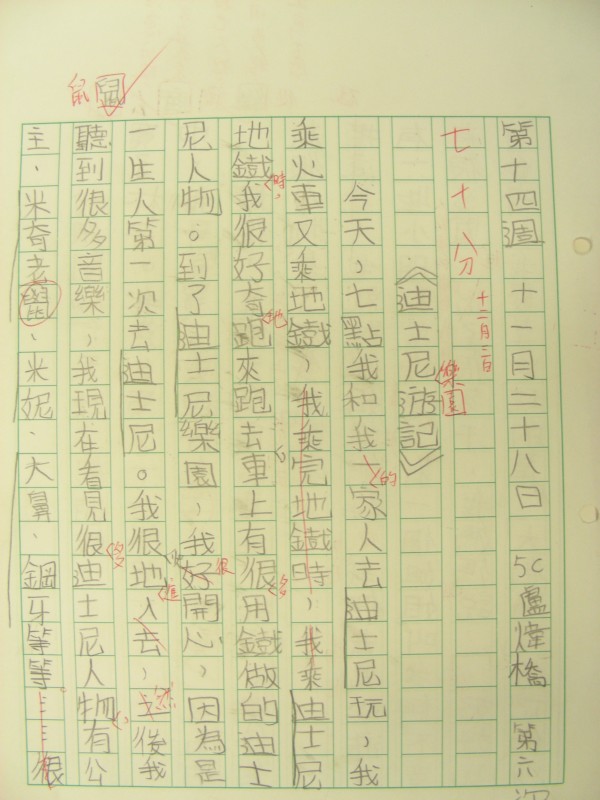 第十四週 十一月二十八日 5C盧煒橋 第六次
七十八分 十二月二日
《迪士尼游記》
樂園
今天，七點我和我家人去迪士尼玩，我
的
乘火車又乘地鐵，我乘完地鐵時，我乘迪士尼
地鐵我很好奇跑來跑去。車上有很用鐵做的迪士
時，
地
多
尼人物。到了迪士尼樂園，我好開心，因為是
很
一生人第一次去迪士尼。我很地入去，後我
進
然
聽到很多音樂，我現在看見很迪士尼人物有公
多
主、米奇老鼠、米妮、大鼻、鋼牙等等。很
鼠
鼠